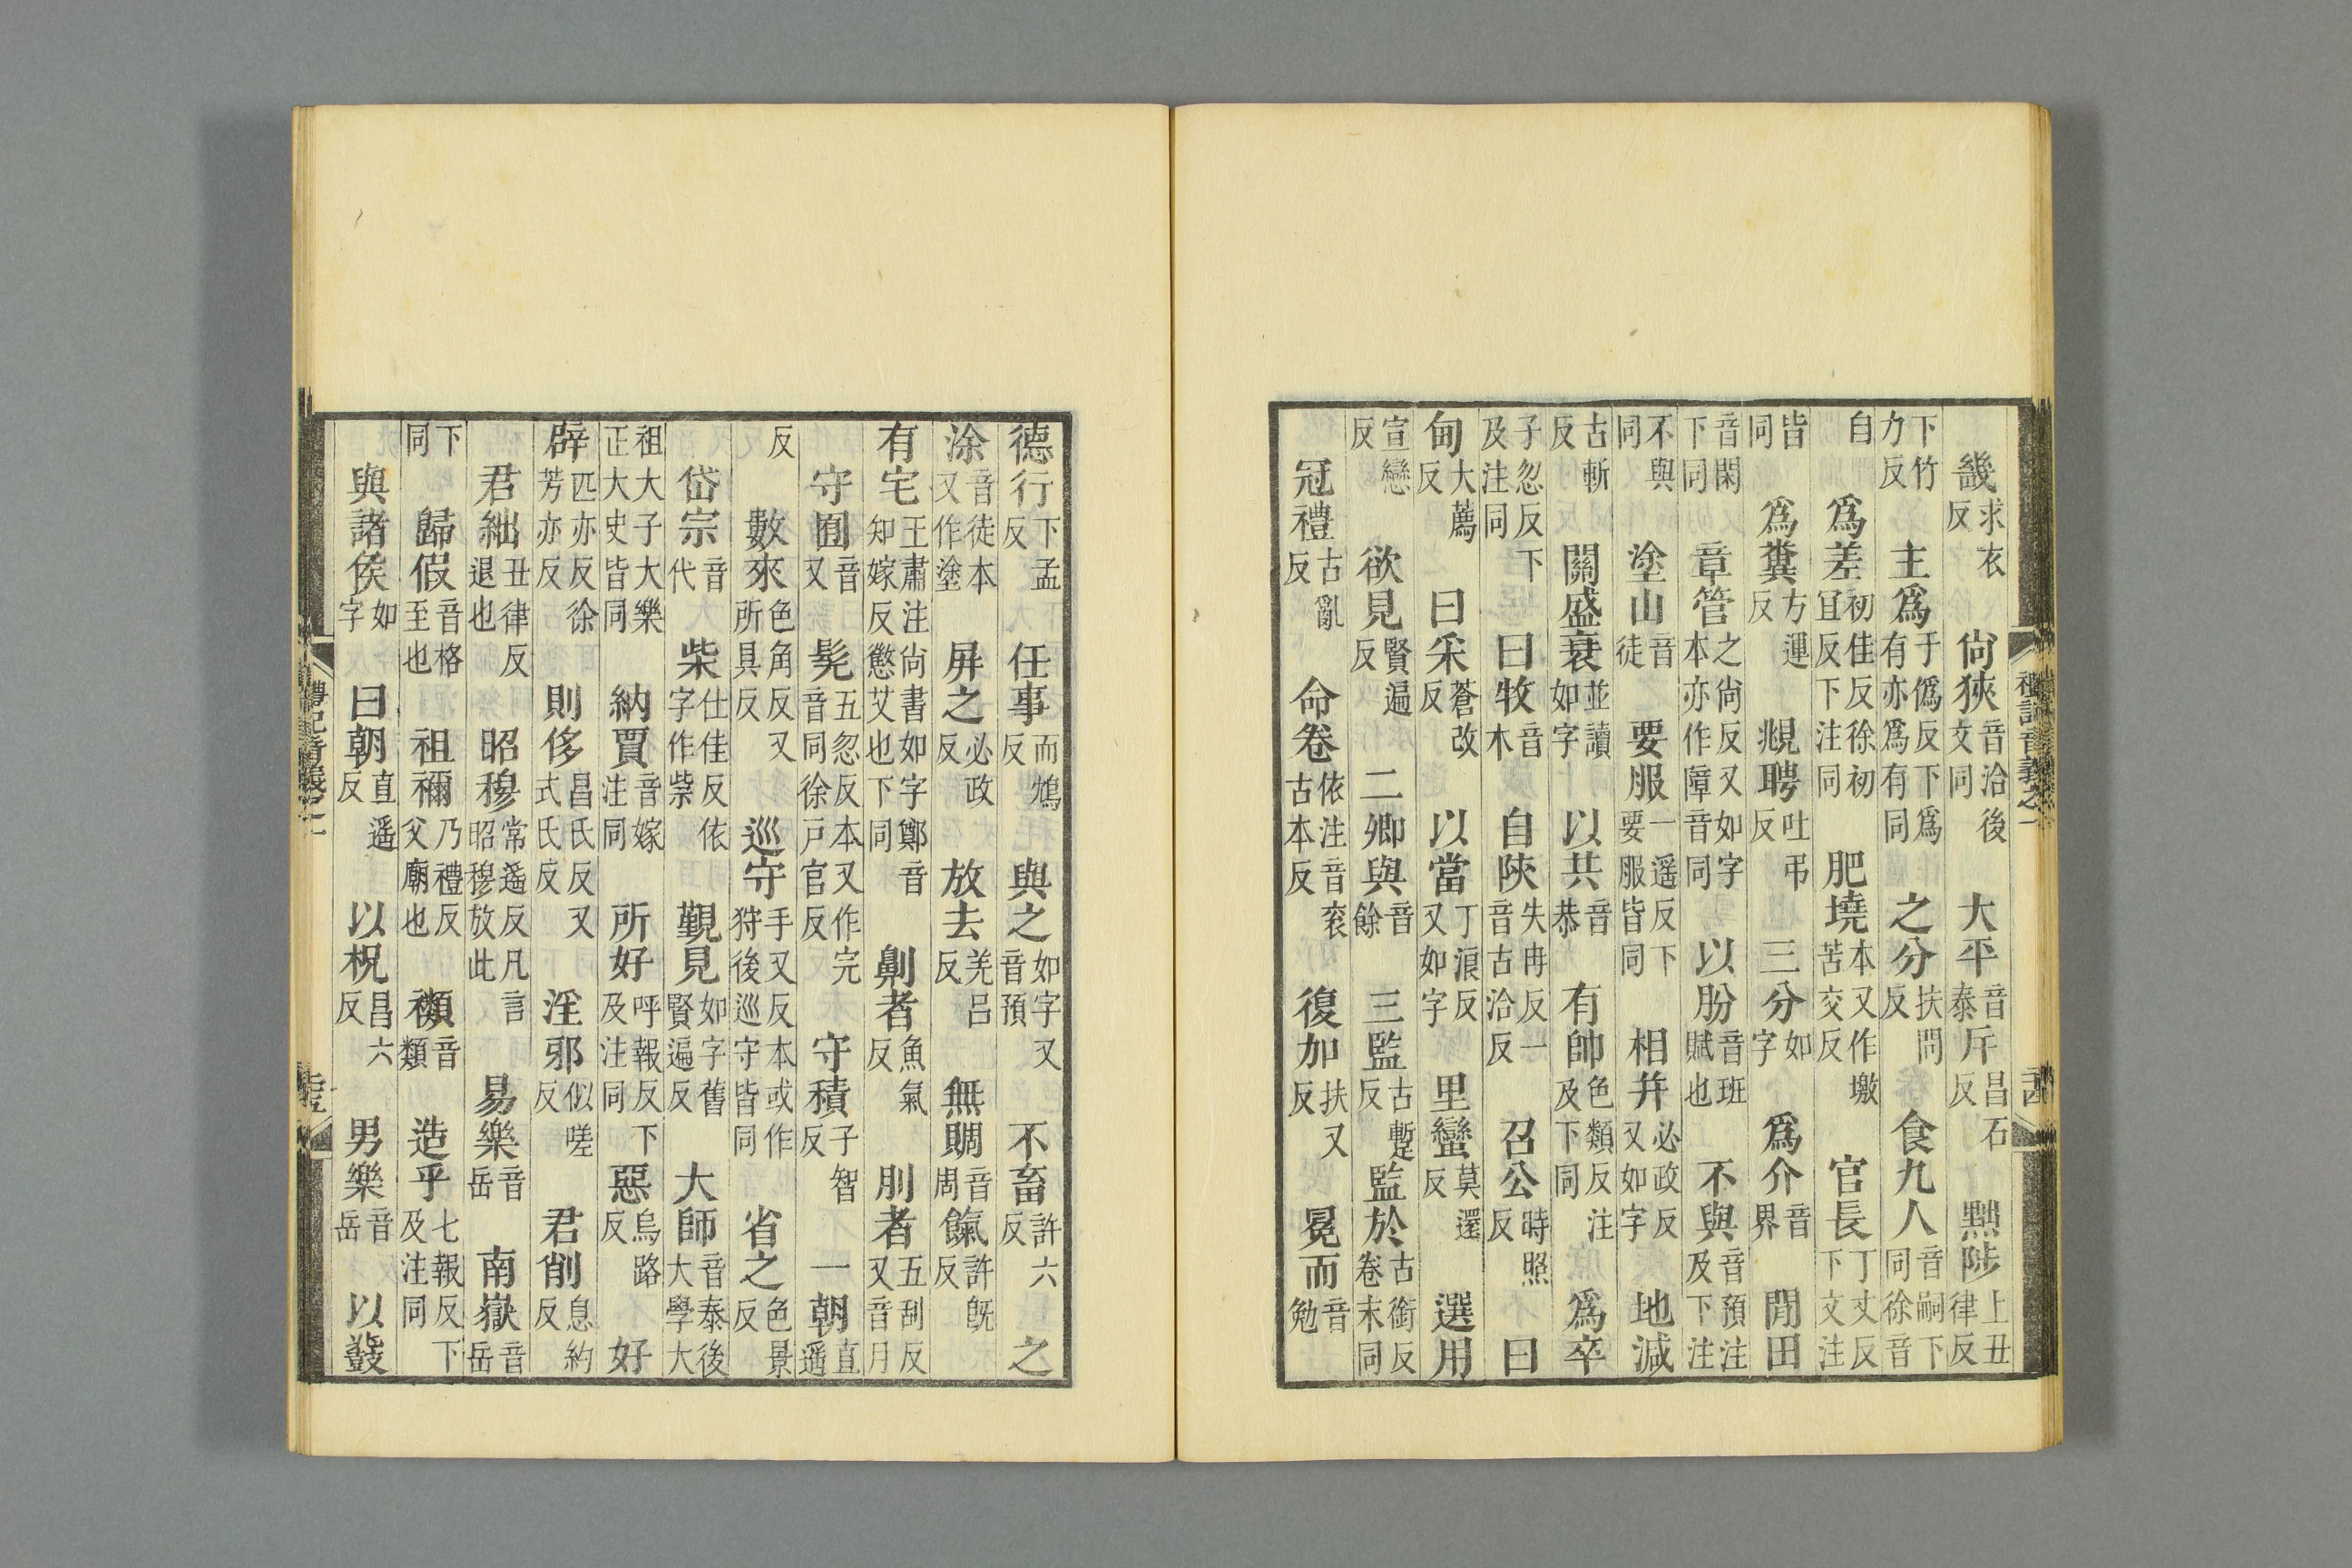 畿求衣反　尙狹音洽後文同　大平音泰斥昌石反　黜陟上丑律反
下竹力反　主爲于僞反下爲有亦爲有同　之分扶問反　食九人音嗣下同徐音
自　爲差初佳反徐初宜反下注同　肥墝本又作墽苦交反　官長丁丈反下文注
皆同　爲糞方運反　覜聘吐弔反　三分如字　爲介音界　閒田
音閑下同　章管之尙反又如字本亦作障音同　以朌音班賦也　不與音預注及下注
不與同　塗山音徒　要服一遥反下要服皆同　相幷必政反又如字　地減
古斬反　關盛衰並讀如字　以共音恭　有帥色類反注及下同　爲卒
子忽反下及注同　曰牧音木　自陝失冉反一音古洽反　召公時照反　曰
甸大薦反　曰采蒼改反　以當丁浪反又如字　里蠻莫還反　選用
宣戀反　欲見賢遍反　二卿與音餘　三監古蹔反監於古銜反卷末同
冠禮古亂反　命卷依注音衮古本反　復加扶又反　冕而音勉
禮記音義之一　二十四
德行下孟反　任事而鴆反　與之如字又音預　不畜許六反　之
涂音徒本又作塗　屛之必政反　放去羌呂反　無賙音周餼許旣反
有宅王肅注尙書如字鄭音知嫁反懲艾也下同　劓者魚氣反　刖者五刮反又音月
守囿音又　髡五忽反本又作完音同徐戸官反　守積子智反　一朝直遥
反　數來色角反又所具反　巡守手又反本或作狩後巡守皆同　省之色景反
岱宗音代　柴仕佳反依字作祡　覲見如字舊賢遍反　大師音泰後大學大
祖大子大樂正大史皆同　納賈音嫁注同　所好呼報反下及注同　惡烏路反　好
辟匹亦反徐芳亦反　則侈昌氏反又式氏反　淫邪似嗟反　君削息約反
君絀丑律反退也　昭穆常遥反凡言昭穆放此　易樂音岳　南嶽音岳
下同　歸假音格至也　祖禰乃禮反父廟也　禷音類　造乎七報反下及注同
與諸侯如字　曰朝直遥反　以柷昌六反　男樂音岳　以鼗
禮記音義之一　二十五